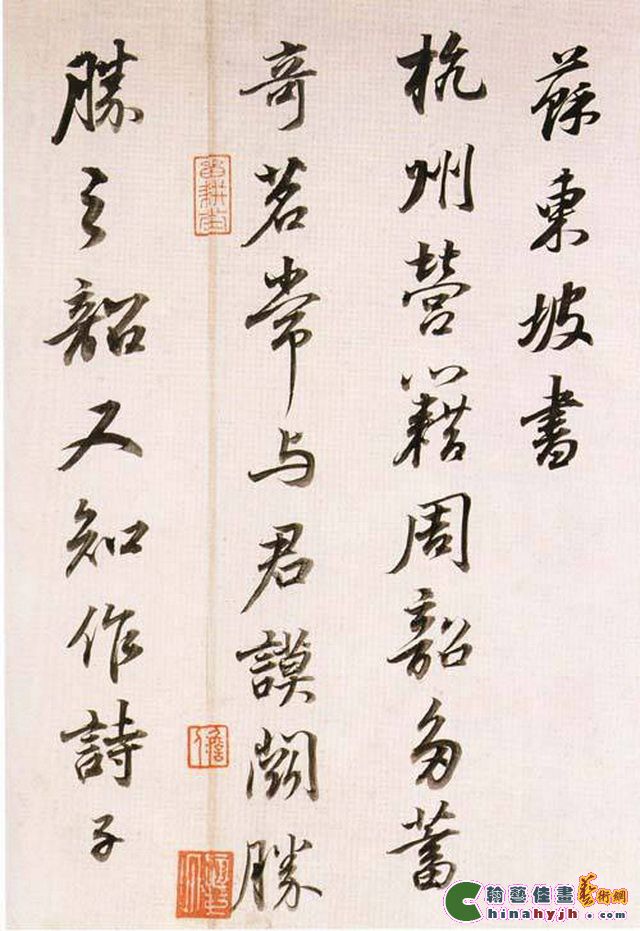 蘇東坡書
杭州營籍周韶多蓄
奇茗常与君謨鬪勝
勝之韶又知作詩子
翰藝佳畫藝術網
Chinahyjh.com